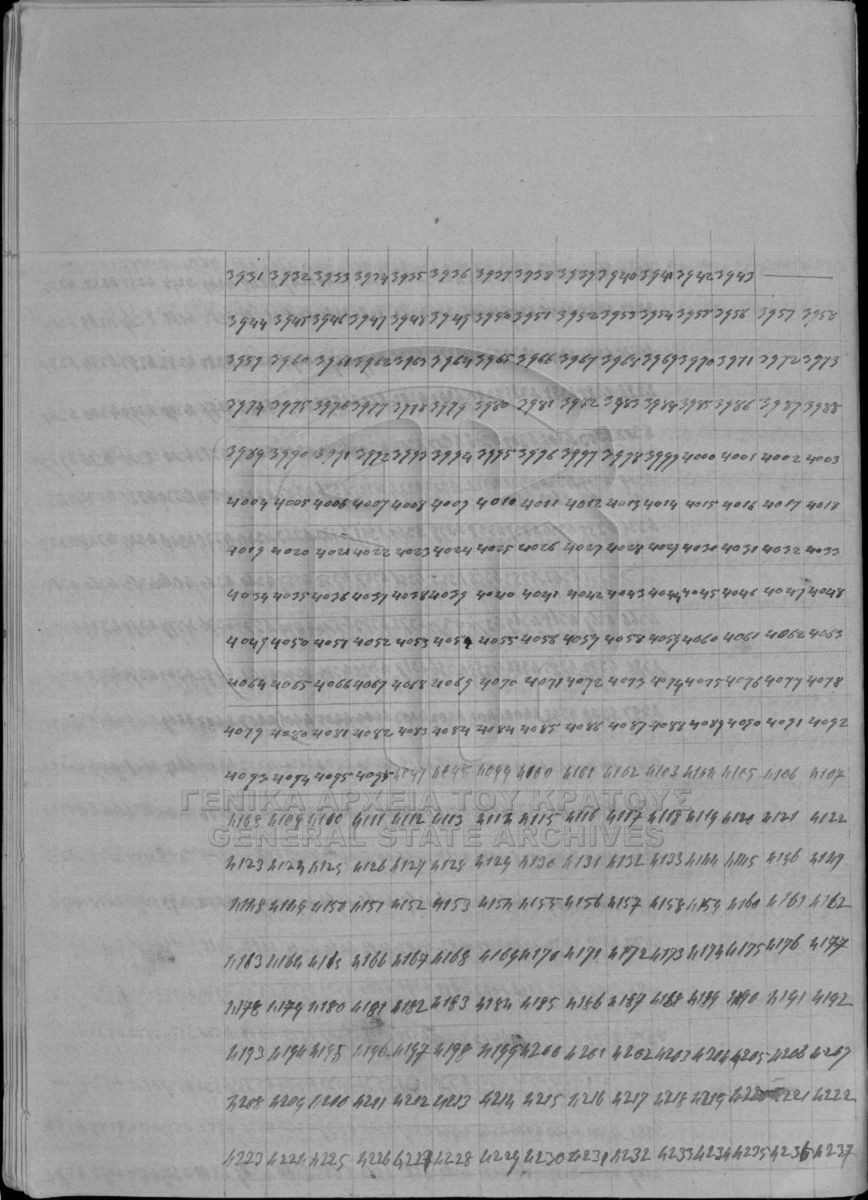 3931 3932 3933 3934 3935 3936 3937 3938 3939 3940 3941 3942 3943
3944 3945 3946 3947 3948 3949 3950 3951 3952 3953 3954 3955 3956 3957 3958
3959 3960 3961 3962 3963 3964 3965 3966 3967 3968 3969 3970 3971 3972 3973
3974 3975 3976 3977 3978 3979 3980 3981 3982 3983 3984 3985 3986 3987 3988
3989 3990 3991 3992 3993 3994 3995 3996 3997 3998 3999 4000 4001 4002 4003
4004 4005 4006 4007 4008 4009 4010 4011 4012 4013 4014 4015 4016 4017 4018
4019 4020 4021 4022 4023 4024 4025 4026 4027 4028 4029 4030 4031 4032 4033
4034 4035 4036 4037 4038 4039 4040 4041 4042 4043 4044 4045 4046 4047 4048
4049 4050 4051 4052 4053 4054 4055 4056 4057 4058 4059 4060 4061 4062 4063
4064 4065 4066 4067 4068 4069 4070 4071 4072 4073 4074 4075 4076 4077 4078
4079 4080 4081 4082 4083 4084 4084 4085 4086 4087 4088 4089 4090 4091 4092
4093 4094 4095 4095 4097 4098 4099 4100 4101 4102 4103 4104 4105 4106 4107
ΓΕΝΙΚΑ ΑΡΧΕΙΑ ΤΟΥ ΚΡΑΤΟΥΣ
4108 4109 4100 4111 4112 4113 4113 4115 4116 4117 4118 4119 4120 4121 4122
GENERAL STATE ARCHIVES
4123 4124 4125 4126 4127 4128 4129 4130 4131 4132 4133 4144 4145 4146 4147
4148 4149 4150 4151 4152 4153 4154 4155 4156 4157 4158 4159 4160 4161 4162
4163 4164 4165 4166 4167 4168 4169 4170 4171 4172 4173 4174 4175 4176 4177
4178 4179 4180 4181 4182 4183 4184 4185 4186 4187 4188 4189 4190 4191 4192
4193 4194 4195 4196 4197 4198 4199 4200 4201 4202 4203 4204 4205 4206 4207
4208 4209 4210 4211 4212 4213 4214 4215 4216 4217 4218 4219 4220 4221 4222
4223 4224 4225 4226 4227 4228 4229 4230 4231 4232 4233 4234 4235 4236 4237